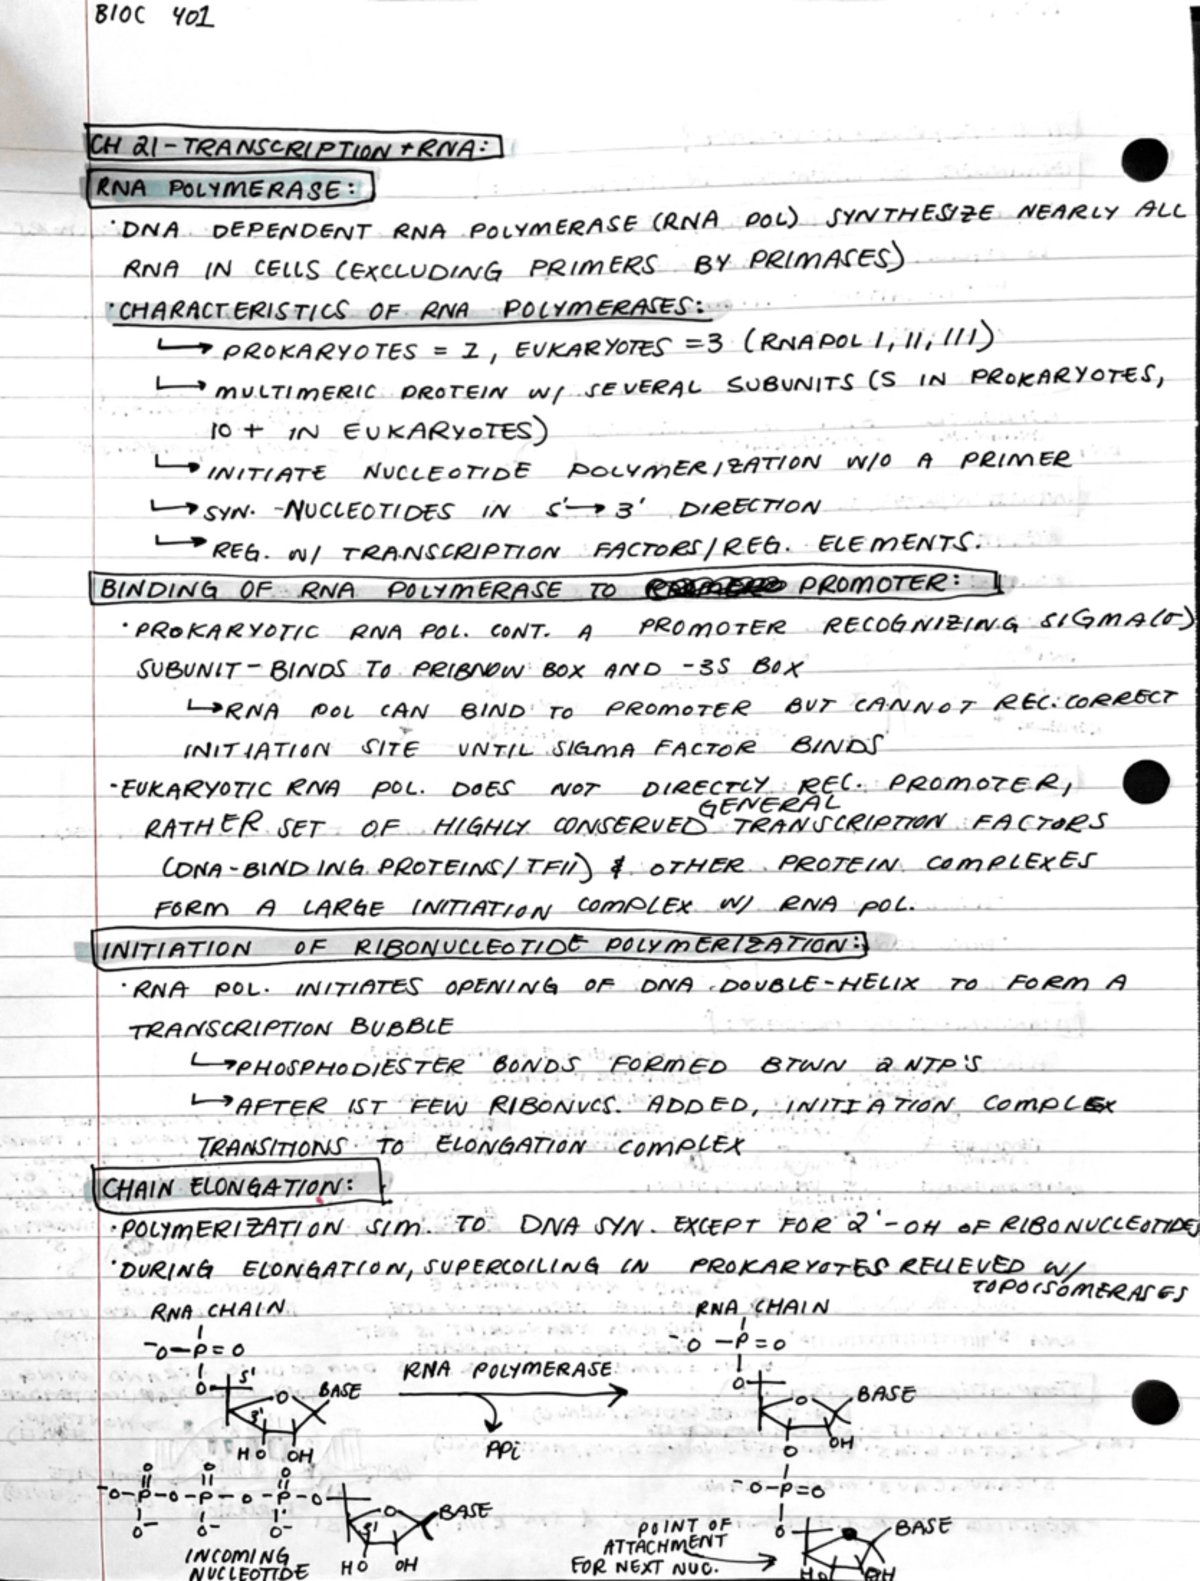 BIOC 401
CH 21 - TRANSCRIPTION + RNA:
RNA POLYMERASE:
· DNA DEPENDENT RNA POLYMERASE (RNA POL) SYNTHESIZE NEARLY ALL
RNA IN CELLS (EXCLUDING PRIMERS BY PRIMASES)
· CHARACTERISTICS OF RNA POLYMERASES:
↳ PROKARYOTES = 1, EUKARYOTES = 3 (RNA POL I, II, III)
↳ MULTIMERIC PROTEIN W/ SEVERAL SUBUNITS (5 IN PROKARYOTES,
10 + IN EUKARYOTES)
↳ INITIATE NUCLEOTIDE POLYMERIZATION W/O A PRIMER
↳ SYN. -NUCLEOTIDES IN 5' → 3' DIRECTION
↳ REG. W/ TRANSCRIPTION FACTORS/REG. ELEMENTS.
BINDING OF RNA POLYMERASE TO PROMOTER:
· PROKARYOTIC RNA POL. CONT. A PROMOTER RECOGNIZING SIGMA (σ)
SUBUNIT - BINDS TO PRIBNOW BOX AND -35 BOX
↳ RNA POL CAN BIND TO PROMOTER BUT CANNOT REC. CORRECT
INITIATION SITE UNTIL SIGMA FACTOR BINDS
· EUKARYOTIC RNA POL. DOES NOT DIRECTLY REC. PROMOTER,
RATHER SET OF HIGHLY CONSERVED GENERAL TRANSCRIPTION FACTORS
(DNA-BINDING PROTEINS/TFII) & OTHER PROTEIN COMPLEXES
FORM A LARGE INITIATION COMPLEX W/ RNA POL.
INITIATION OF RIBONUCLEOTIDE POLYMERIZATION:
· RNA POL. INITIATES OPENING OF DNA DOUBLE-HELIX TO FORM A
TRANSCRIPTION BUBBLE
↳ PHOSPHODIESTER BONDS FORMED BTWN 2 NTP'S
↳ AFTER 1ST FEW RIBONUCS. ADDED, INITIATION COMPLEX
TRANSITIONS TO ELONGATION COMPLEX
CHAIN ELONGATION:
· POLYMERIZATION SIM. TO DNA SYN. EXCEPT FOR 2'-OH OF RIBONUCLEOTIDES
· DURING ELONGATION, SUPERCOILING IN PROKARYOTES RELIEVED W/
TOPOISOMERASES
RNA CHAIN RNA CHAIN
⁻O-P=O ⁻O-P=O
RNA POLYMERASE
O 5' O BASE O O BASE
3' HO OH PPi O OH
O O O ⁻O-P=O
⁻O-P-O-P-O-P-O O BASE
O⁻ O⁻ O⁻ 5' HO OH
O BASE
INCOMING NUCLEOTIDE
POINT OF
ATTACHMENT
FOR NEXT NUC.
HO OH